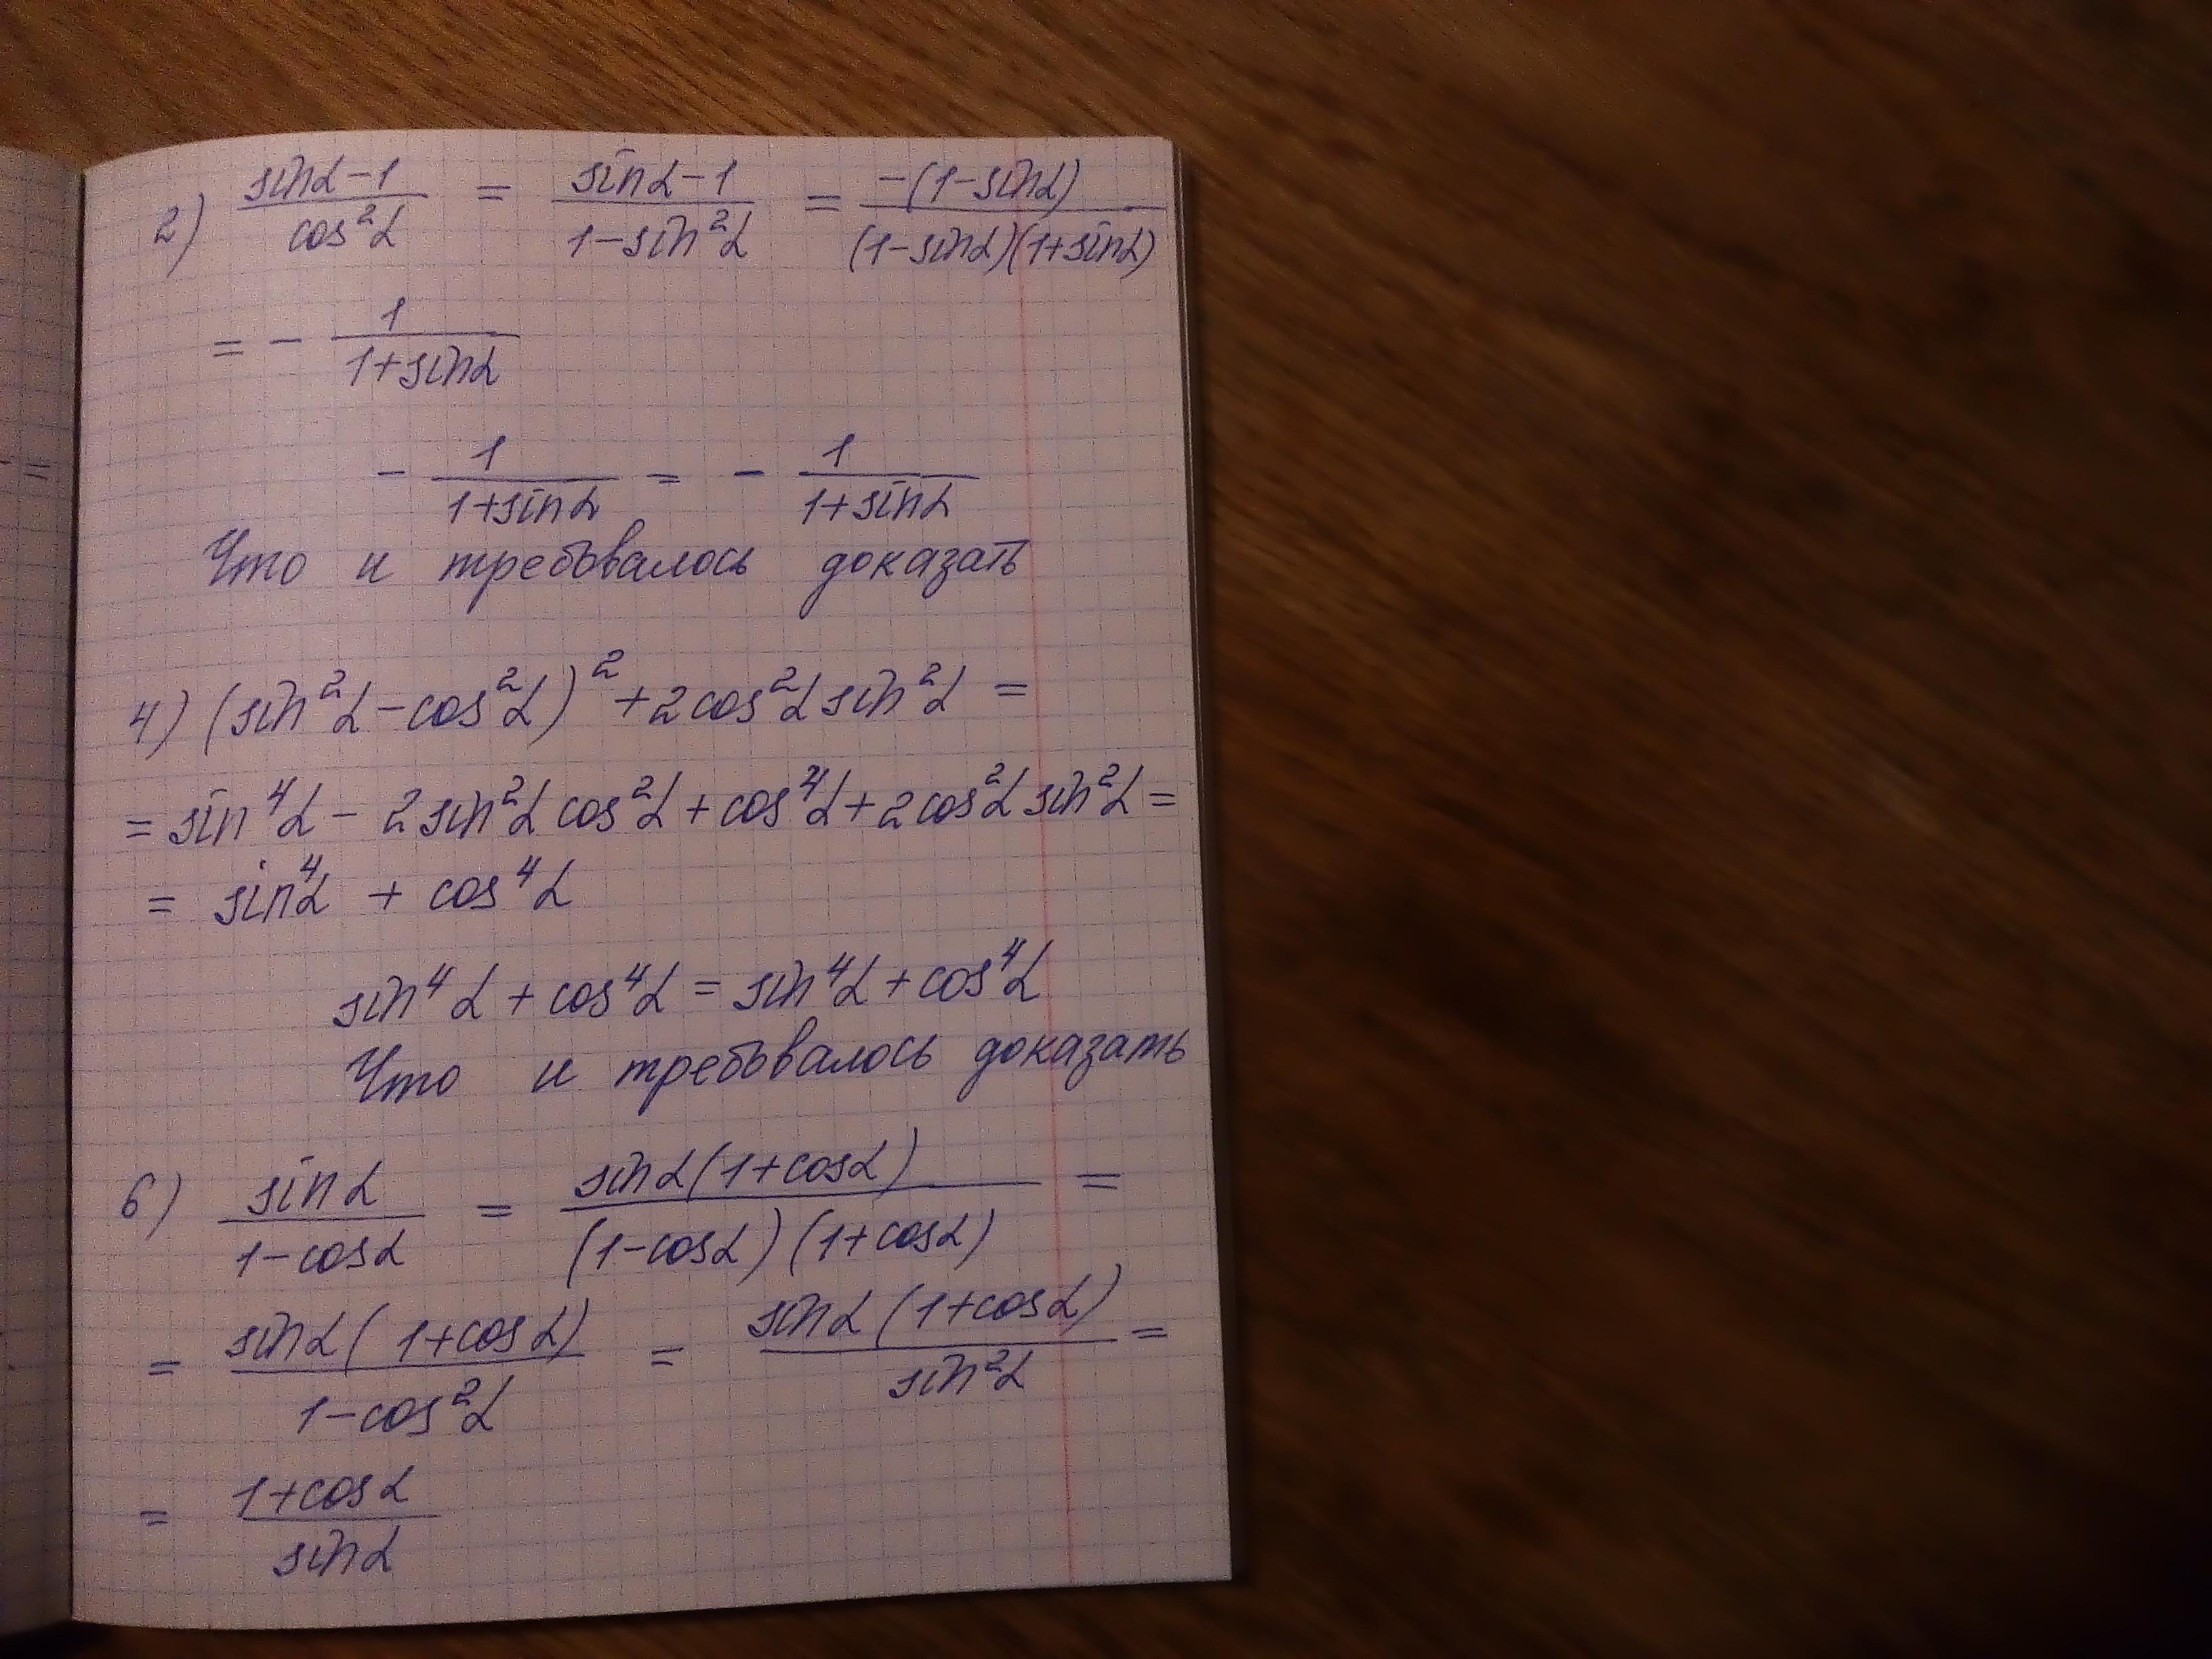 2) (sinα-1)/(cos²α) = (sinα-1)/(1-sin²α) = (-(1-sinα))/((1-sinα)(1+sinα))
= - 1/(1+sinα)
- 1/(1+sinα) = - 1/(1+sinα)
Что и требовалось доказать
4) (sin²α-cos²α)²+2cos²α sin²α =
= sin⁴α - 2sin²α cos²α + cos⁴α + 2cos²α sin²α =
= sin⁴α + cos⁴α
sin⁴α + cos⁴α = sin⁴α + cos⁴α
Что и требовалось доказать
6) (sinα)/(1-cosα) = (sinα(1+cosα))/((1-cosα)(1+cosα)) =
= (sinα(1+cosα))/(1-cos²α) = (sinα(1+cosα))/(sin²α) =
= (1+cosα)/(sinα)